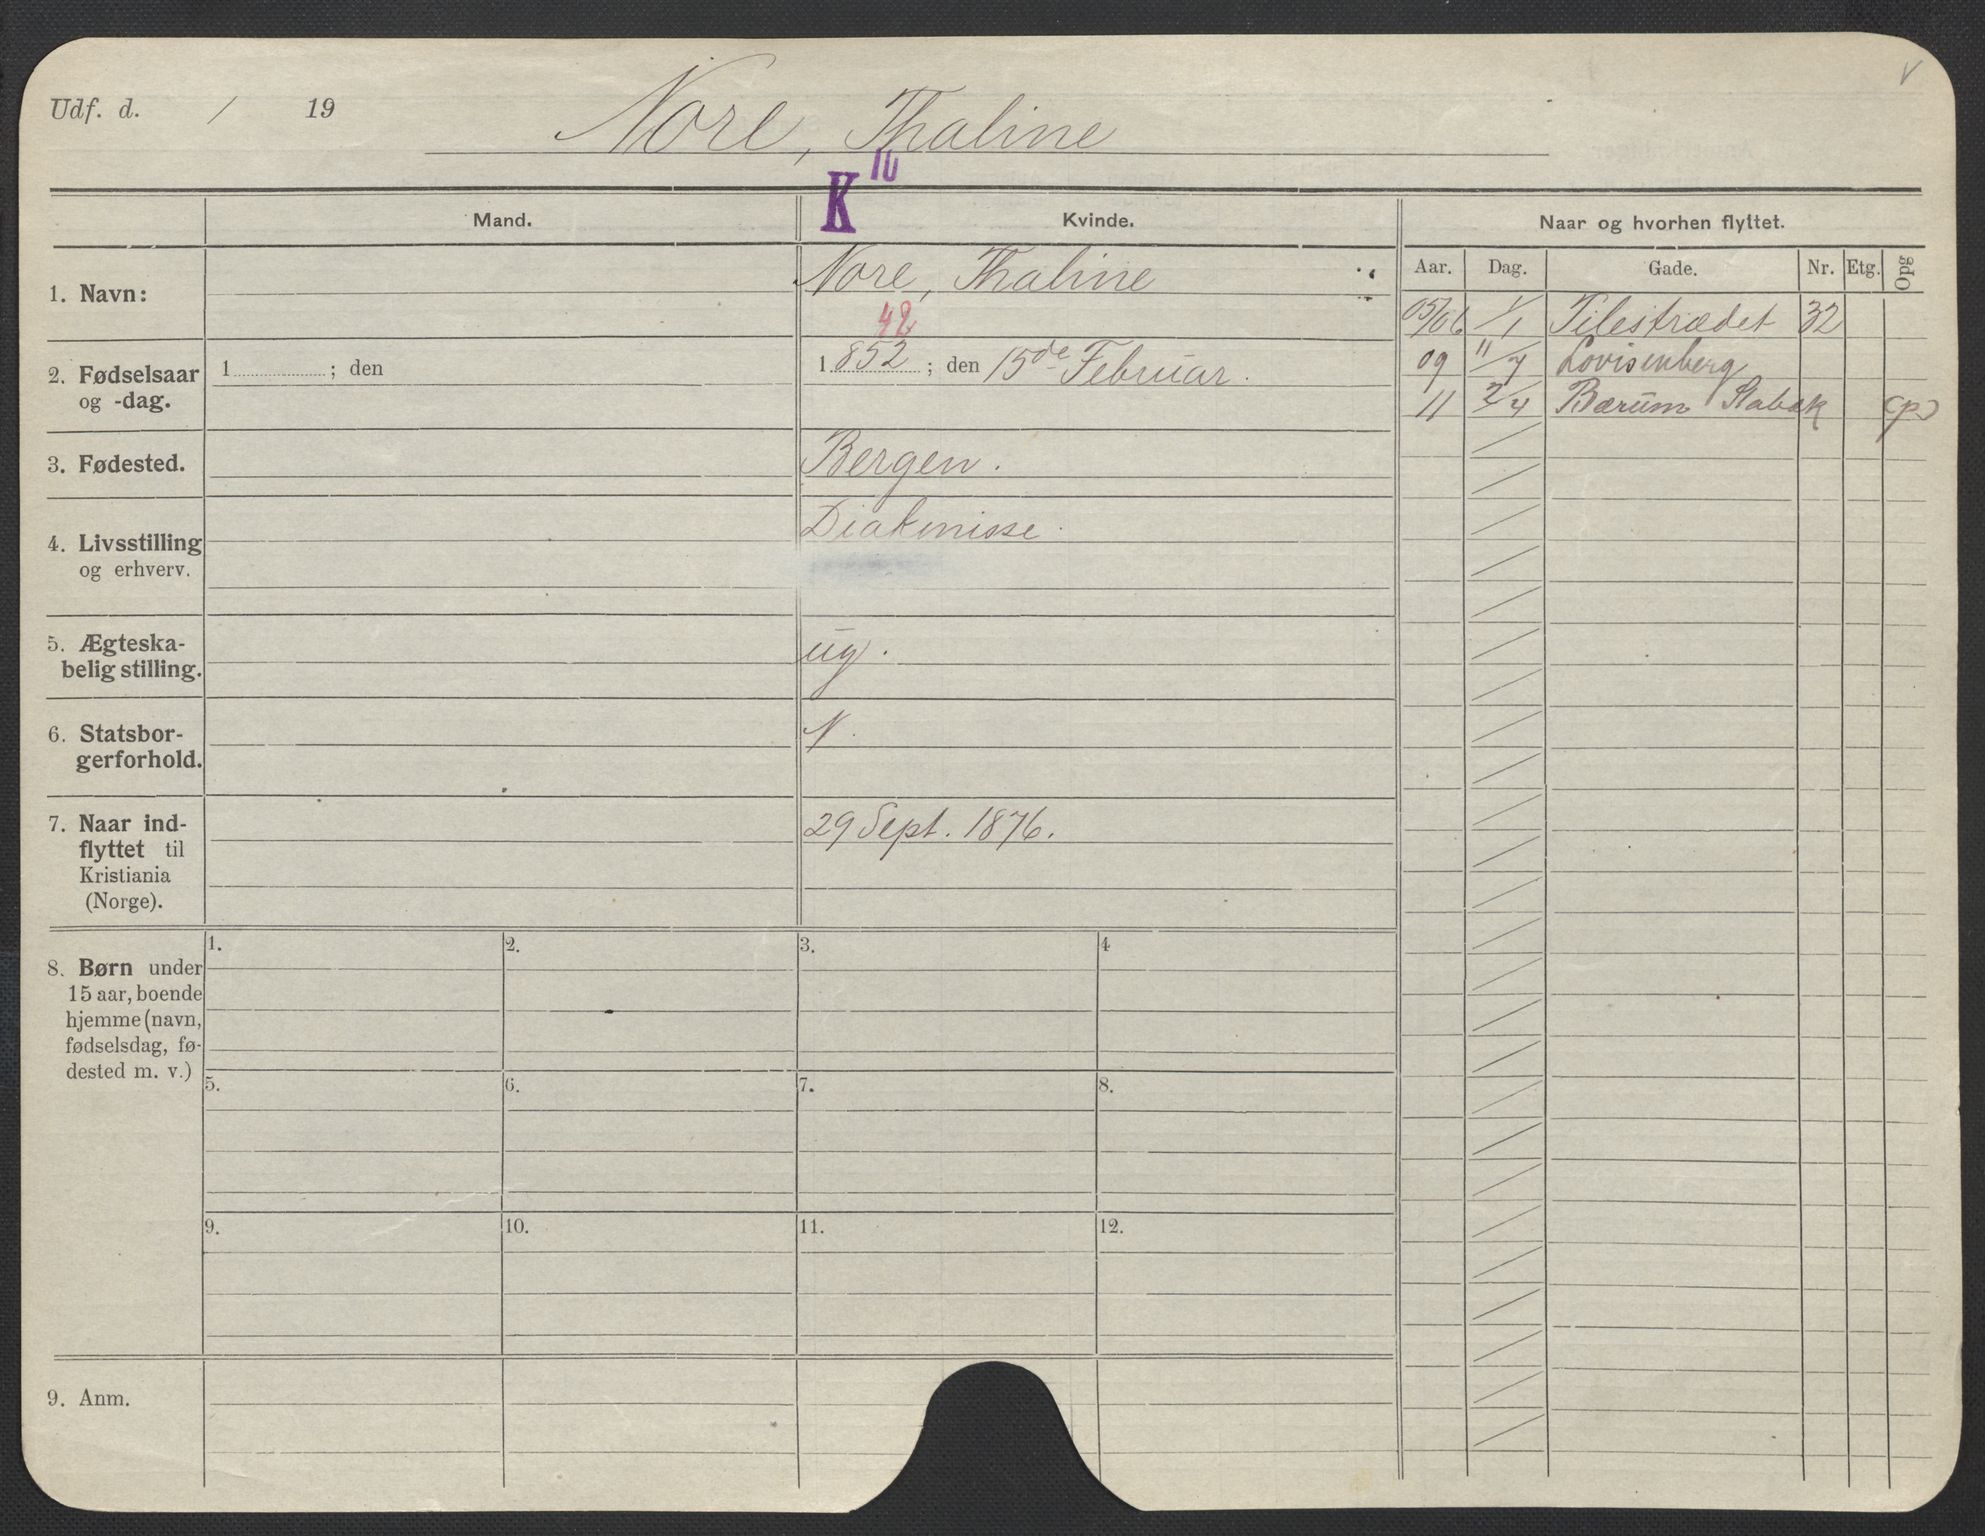 Udf. d. / 19
Nore, Thaline
K 10
Mand.
Kvinde.
Naar og hvorhen flyttet.
Aar. Dag. Gade. Nr. Etg. Opg
1. Navn:
Nore, Thaline
42
2. Fødselsaar
og -dag.
1 ; den
1852 ; den 15de Februar.
3. Fødested.
Bergen.
4. Livsstilling
og erhverv.
Diakonisse.
5. Ægteska-
belig stilling.
ug.
6. Statsbor-
gerforhold.
N.
7. Naar ind-
flyttet til
Kristiania
(Norge).
29 Sept. 1876.
8. Børn under
15 aar, boende
hjemme (navn,
fødselsdag, fø-
dested m. v.)
1. 2. 3. 4
5. 6. 7. 8.
9. 10. 11. 12.
9. Anm.
05/06 1/1 Pilestrædet 32
09 11/7 Lovisenberg
11 2/4 Bærum Stabæk (p)
V